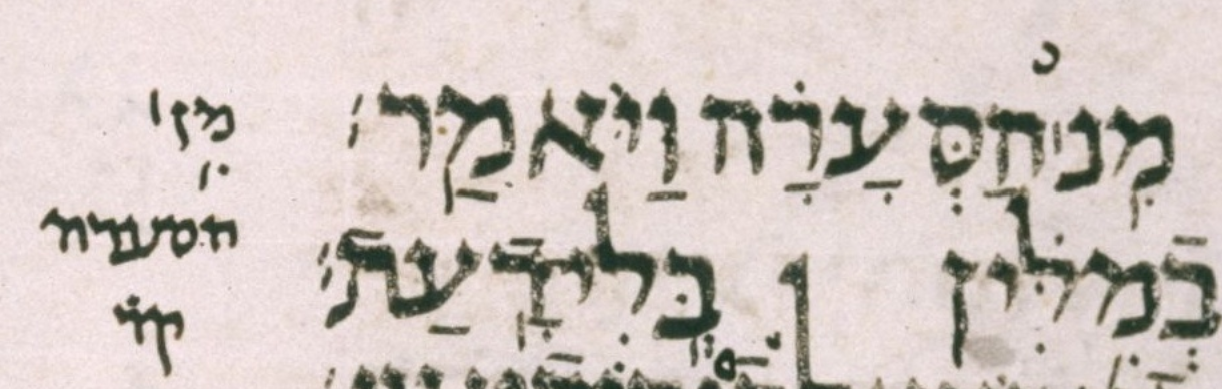 מִנ֥הַסְּעָרָ֗ה וַיֹּאמַֽר
בְמִלִּ֗ין בְּֽלִי־דָֽעַת
מן
הסערה
קר